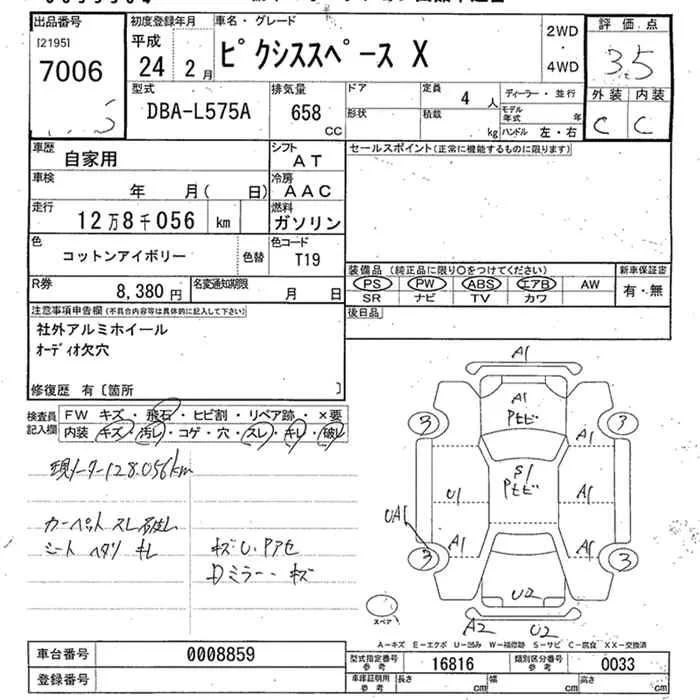 出品番号
I21951
7006
初度登録年月
平成
24 2月
車名・グレード
ピクシススペース X
2WD
・
4WD
評価点
3.5
外装 内装
C C
型式
DBA-L575A
排気量
658
CC
ドア
形状
定員
4 人
積載
kg
ディーラー・並行
モデル年式 年
ハンドル 左・右
車歴
自家用
シフト
AT
セールスポイント(正常に機能するものに限ります)
車検
年 月( 日)
冷房
AAC
走行
12万8千056
km
燃料
ガソリン
色
コットンアイボリー
色替
色コード
T19
装備品(純正品に限り○をつけてください)
新車保証書
PS PW ABS エアB AW
有・無
SR ナビ TV カワ
R券
8,380 円
名変通知期限
月 日
後日品
注意事項申告欄(不具合内容等は具体的に記入して下さい)
社外アルミホイール
オーディオ欠穴
修復歴 有〔箇所 〕
検査員
記入欄
FW キズ・飛石・ヒビ割・リペア跡・×要
内装 キズ・汚レ・コゲ・穴・スレ・キレ・破レ
現メーター128.056km
カーペット スレ
シート ヘタリ キレ
キズ.U.Pアセ
Dミラー キズ
A1
A1
Pセビ
3 3
S1
Pセビ
U1 A1
UA1
A1 A1
3 3
U2
A2 U2
スペア
A－キズ E－エクボ U－凹み W－補修跡 S－サビ C－腐食 XX－交換済
車台番号
0008859
登録番号
型式指定番号
参考
16816
類別区分番号
参考
0033
車庫証明用
参考
長さ
cm
幅
cm
高さ
cm